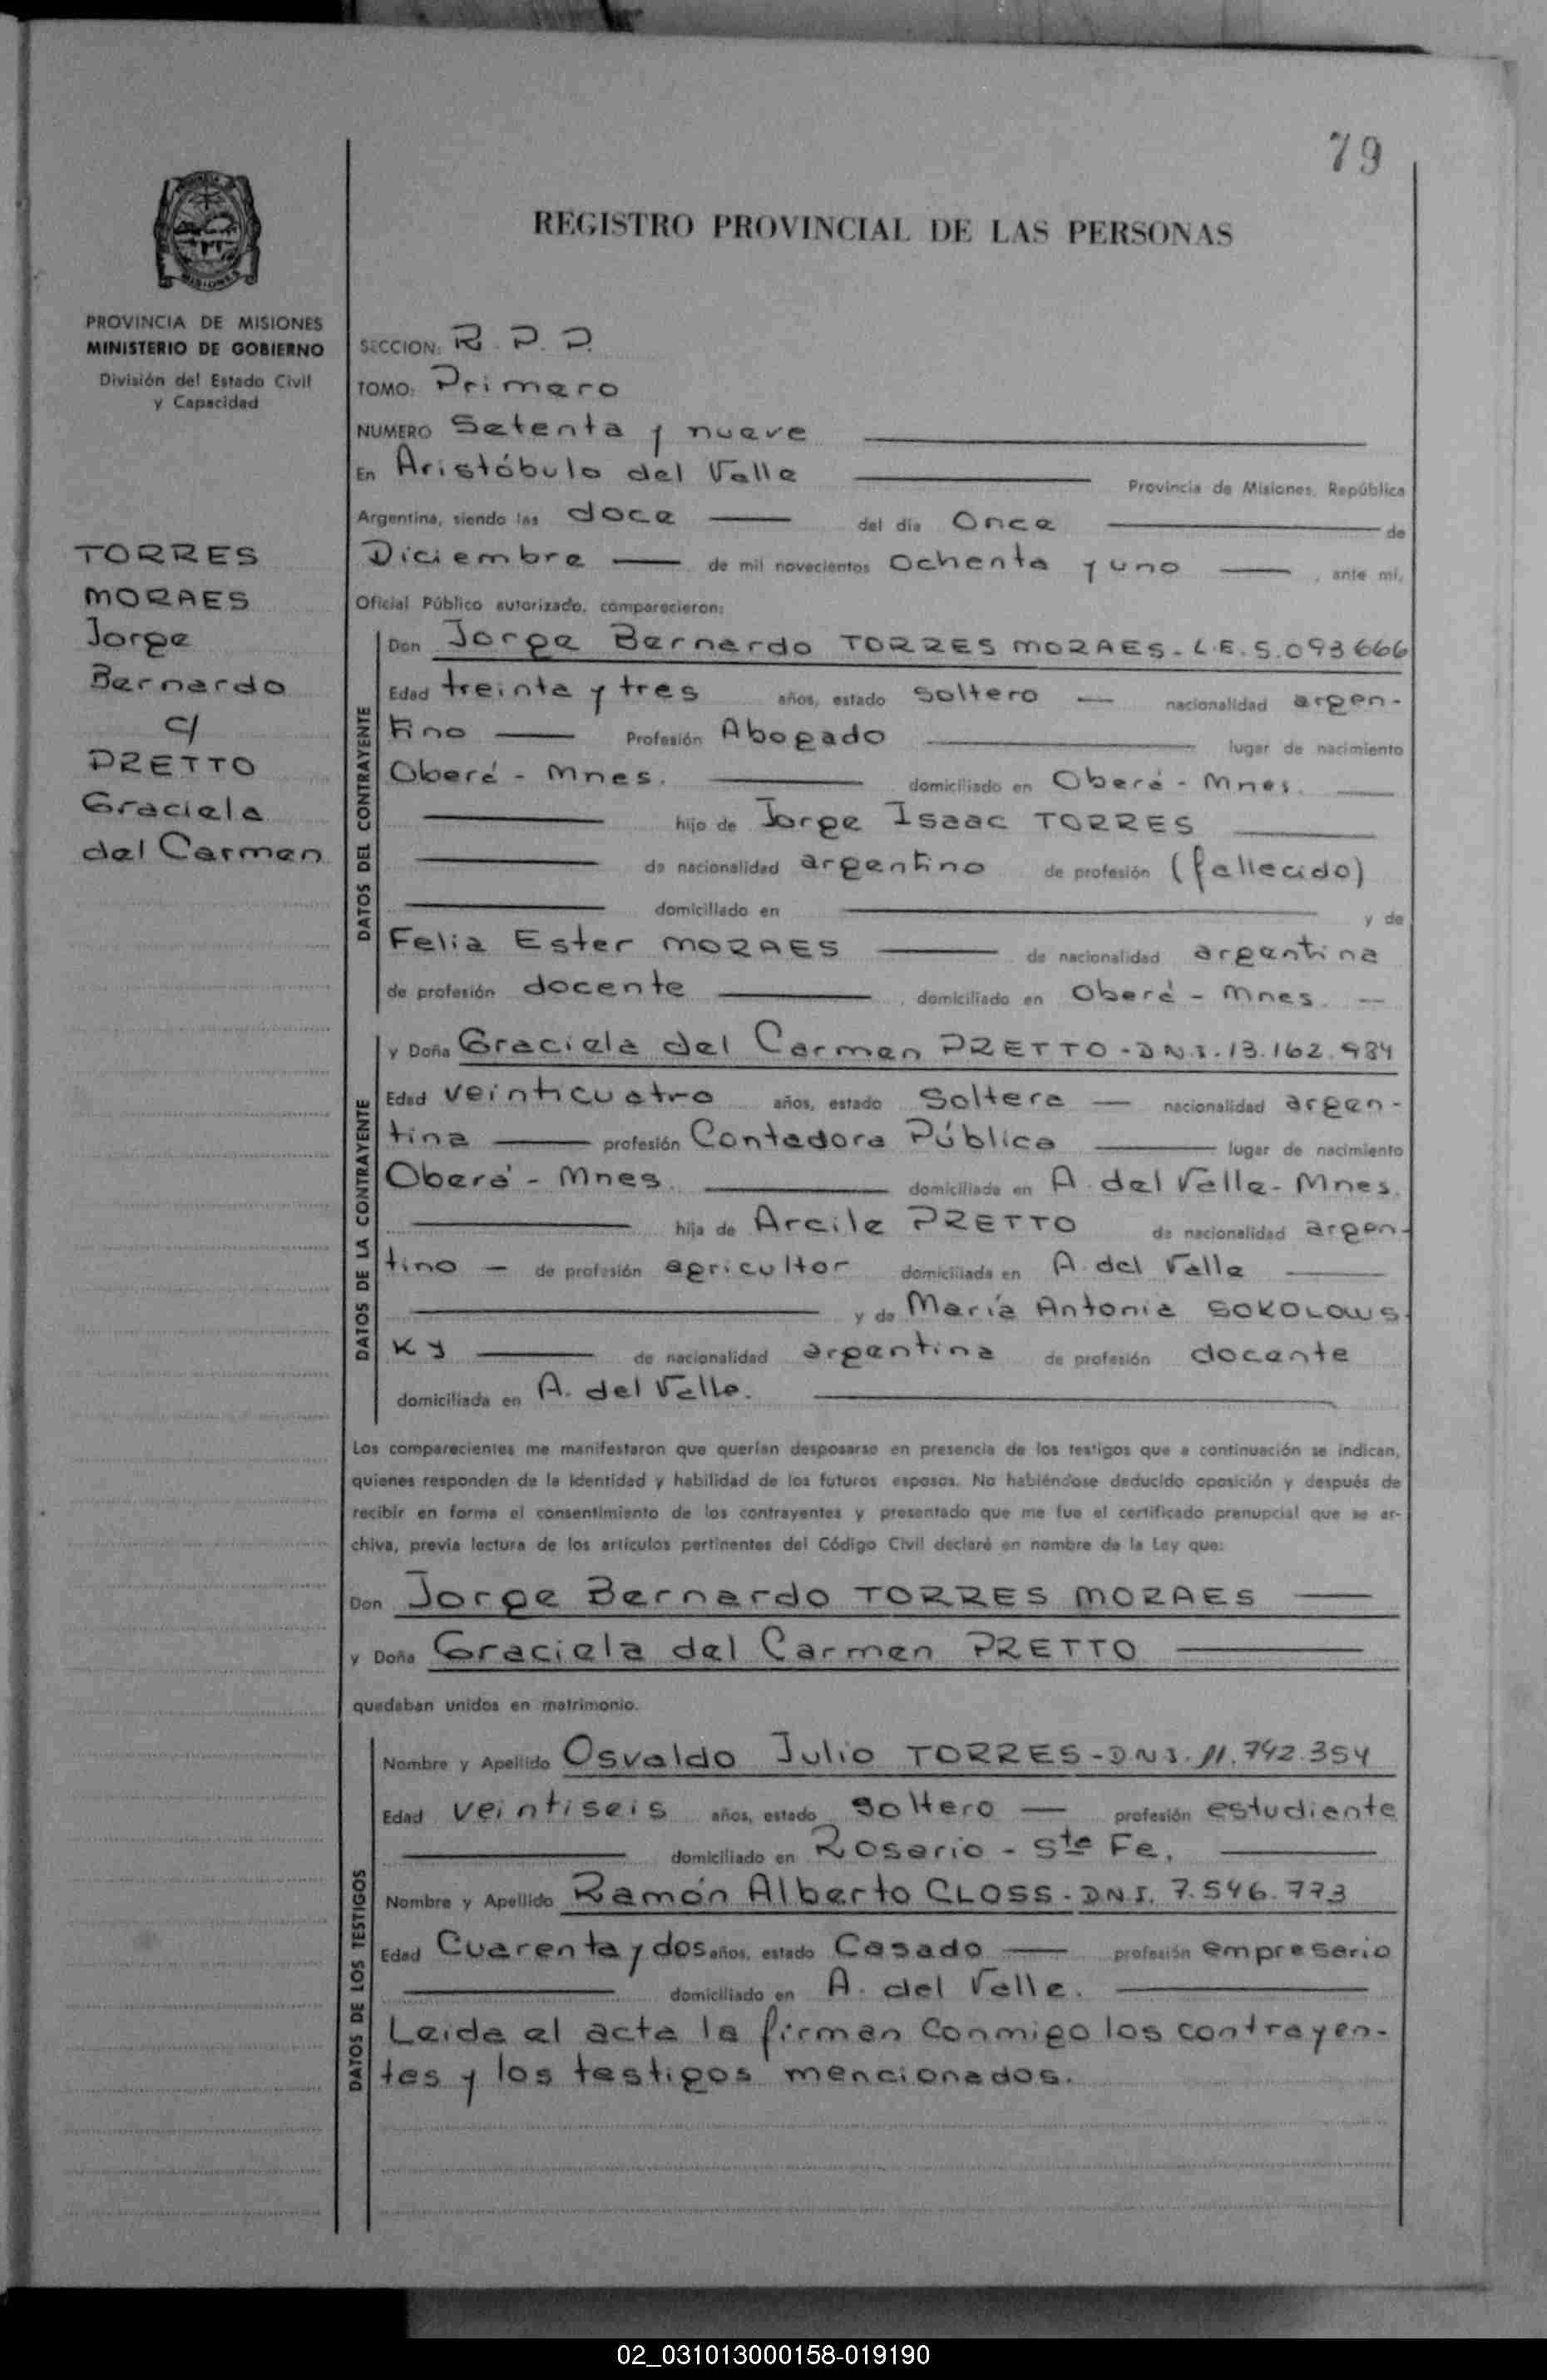 79
REGISTRO PROVINCIAL DE LAS PERSONAS
PROVINCIA DE MISIONES
MINISTERIO DE GOBIERNO
División del Estado Civil
y Capacidad
TORRES
MORAES
Jorge
Bernardo
c/
PRETTO
Graciela
del Carmen
SECCION: R. P. P.
TOMO: Primero
NUMERO Setenta y nueve
En Aristóbulo del Valle Provincia de Misiones, República
Argentina, siendo las doce del día Once de
Diciembre de mil novecientos Ochenta y uno , ante mí,
Oficial Público autorizado, comparecieron:
DATOS DEL CONTRAYENTE
Don Jorge Bernardo TORRES MORAES - L.E. 5.093666
Edad treinta y tres años, estado soltero nacionalidad argen-
tino Profesión Abogado lugar de nacimiento
Oberá - Mnes. domiciliado en Oberá - Mnes.
hijo de Jorge Isaac TORRES
de nacionalidad argentino de profesión (fallecido)
domiciliado en y de
Felia Ester MORAES de nacionalidad argentina
de profesión docente , domiciliado en Oberá - Mnes.
DATOS DE LA CONTRAYENTE
y Doña Graciela del Carmen PRETTO - D.N.I. 13.162.984
Edad veinticuatro años, estado Soltera nacionalidad argen-
tina profesión Contadora Pública lugar de nacimiento
Oberá - Mnes. domiciliada en A. del Valle - Mnes.
hija de Arcile PRETTO de nacionalidad argen-
tino de profesión agricultor domiciliada en A. del Valle
y de María Antonia SOKOLOWS-
KY de nacionalidad argentina de profesión docente
domiciliada en A. del Valle.
Los comparecientes me manifestaron que querían desposarse en presencia de los testigos que a continuación se indican,
quienes responden de la identidad y habilidad de los futuros esposos. No habiéndose deducido oposición y después de
recibir en forma el consentimiento de los contrayentes y presentado que me fue el certificado prenupcial que se ar-
chiva, previa lectura de los artículos pertinentes del Código Civil declaré en nombre de la Ley que:
Don Jorge Bernardo TORRES MORAES
y Doña Graciela del Carmen PRETTO
quedaban unidos en matrimonio.
DATOS DE LOS TESTIGOS
Nombre y Apellido Osvaldo Julio TORRES - D.N.I. 11.742.354
Edad veintiseis años, estado soltero profesión estudiante
domiciliado en Rosario - Sta Fe.
Nombre y Apellido Ramón Alberto CLOSS - D.N.I. 7.546.773
Edad Cuarenta y dos años, estado Casado profesión empresario
domiciliado en A. del Valle.
Leida el acta la firman conmigo los contrayen-
tes y los testigos mencionados.
02_031013000158-019190